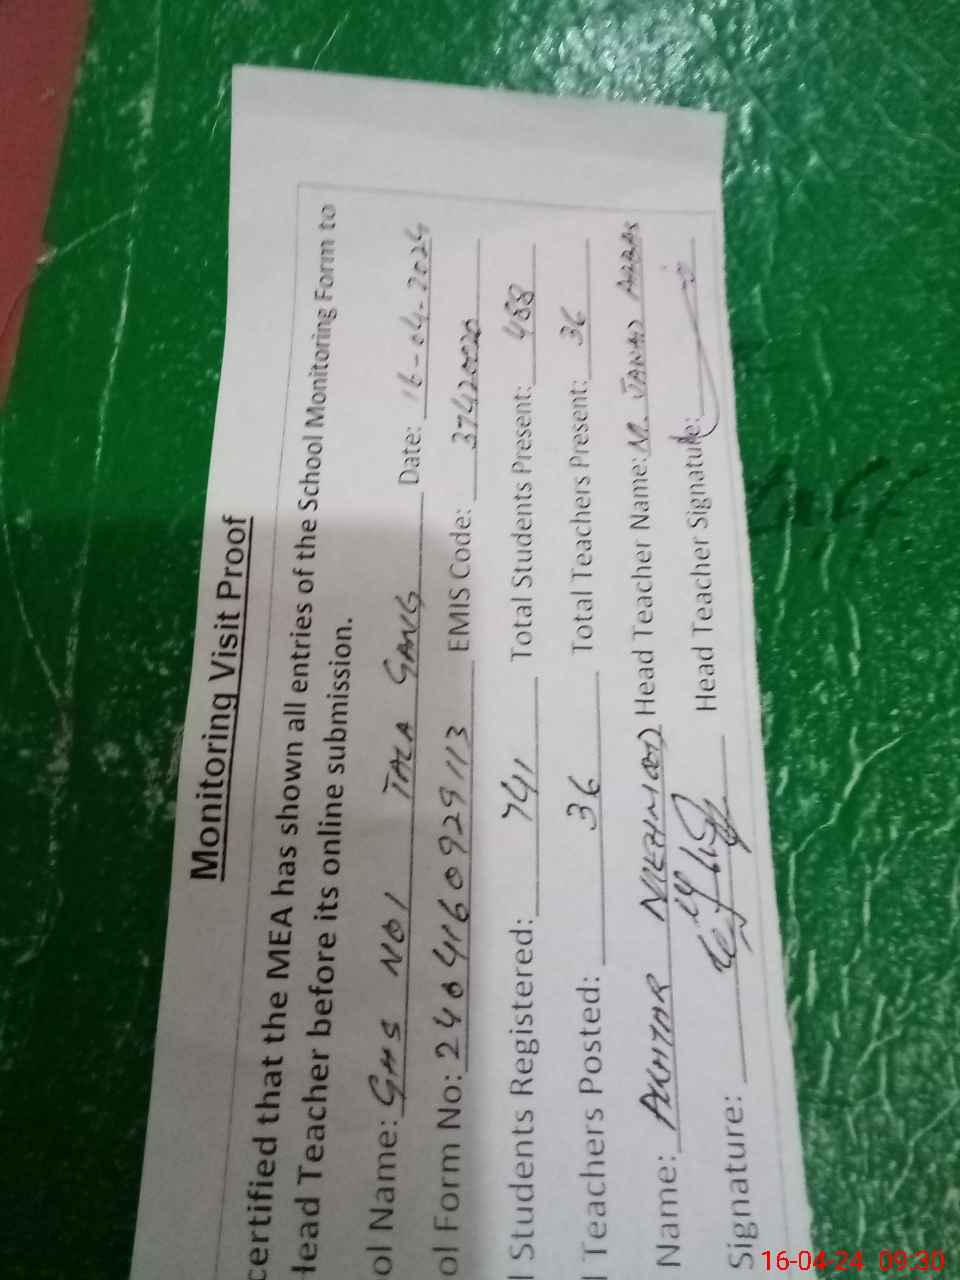 Monitoring Visit Proof
certified that the MEA has shown all entries of the School Monitoring Form to
Head Teacher before its online submission.
ol Name: GHS NO1 TALA GANG Date: 16-04-2024
ol Form No: 2404160929113 EMIS Code: 37420020
l Students Registered: 741 Total Students Present: 488
l Teachers Posted: 36 Total Teachers Present: 36
Name: AKHTAR Head Teacher Name: M. JAWAD ABBAS
Signature: Head Teacher Signature:
16-04-24 09:30